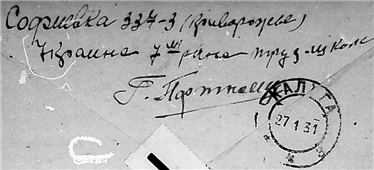 Софиевка 337-3 (Криворожье)
Украина 7ми ... труд школе
Г. Портнову
КАЛУГА
27 1 31